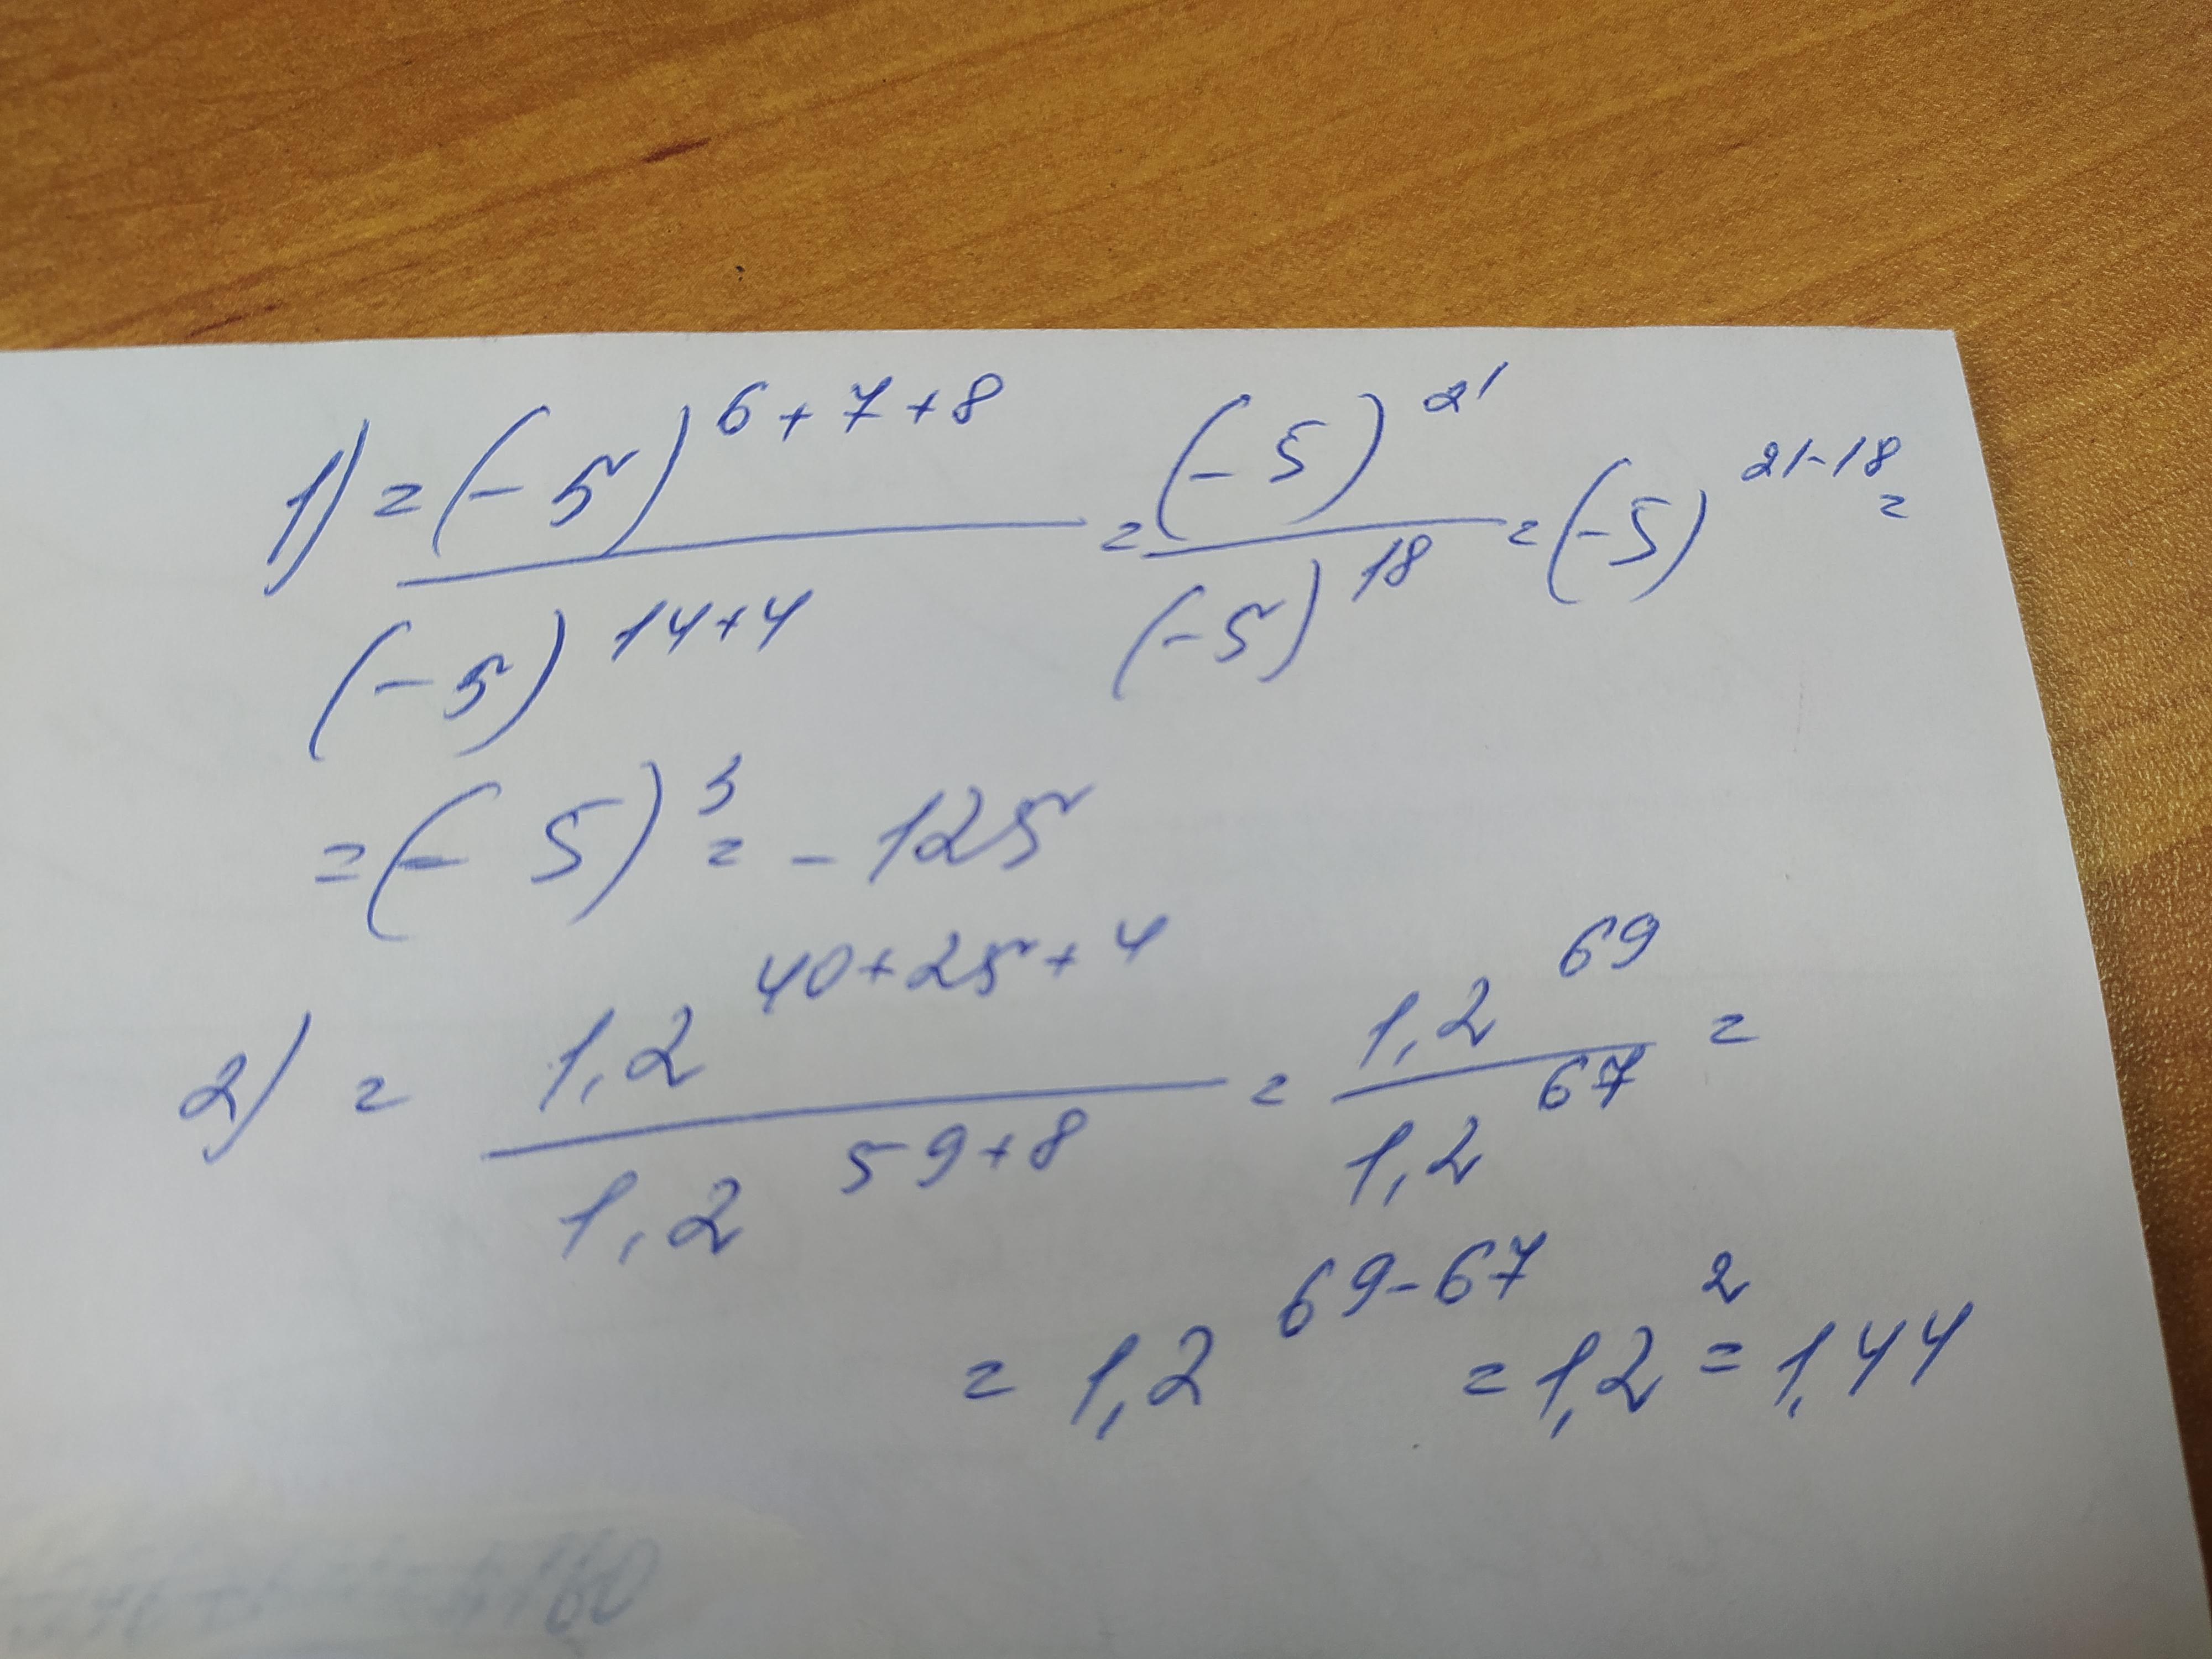 1) = (-5)^{6+7+8} / (-5)^{14+4} = (-5)^{21} / (-5)^{18} = (-5)^{21-18} =
= (-5)^3 = -125
2) = 1,2^{40+25+4} / 1,2^{59+8} = 1,2^{69} / 1,2^{67} =
= 1,2^{69-67} = 1,2^2 = 1,44